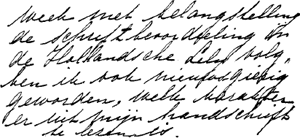 week met belangstelling
de schriftbeoordeeling in
de Hollandsche Lely volg,
ben ik ook nieuwsgierig
geworden, welk karakter
er uit mijn handschrift
te lezen is.